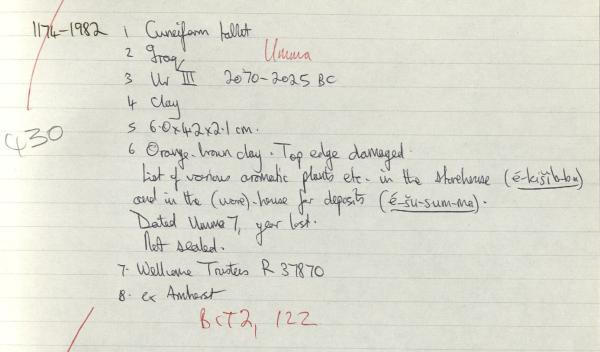 1174-1982 1 Cuneiform tablet
2 Iraq Umma
3 Ur III 2070-2025 BC
4 Clay
430
5 6.0x4.2x2.1 cm.
6 Orange-brown clay. Top edge damaged.
List of various aromatic plants etc. in the storehouse (é-kišib-ba)
and in the (ware)-house for deposits (é-šu-sum-ma).
Dated Umma 7, year lost.
Not sealed.
7. Wellcome Trustees R 37870
8. ex Amherst
BCT2, 122